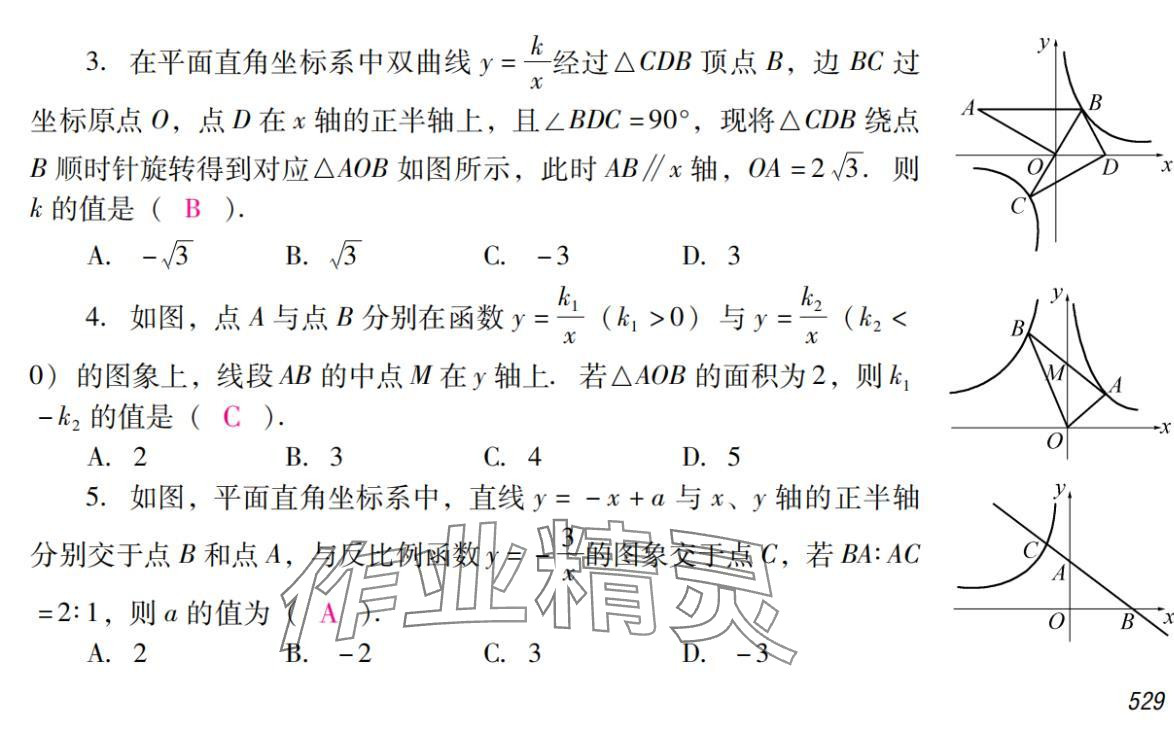 3. 在平面直角坐标系中双曲线 y = k/x 经过△CDB 顶点 B，边 BC 过
坐标原点 O，点 D 在 x 轴的正半轴上，且∠BDC = 90°，现将△CDB 绕点
B 顺时针旋转得到对应△AOB 如图所示，此时 AB∥x 轴，OA = 2√3. 则
k 的值是（ B ）.
A. -√3 B. √3 C. -3 D. 3
y
A
B
O
D
x
C
4. 如图，点 A 与点 B 分别在函数 y = k₁/x（k₁ > 0）与 y = k₂/x（k₂ <
0）的图象上，线段 AB 的中点 M 在 y 轴上. 若△AOB 的面积为 2，则 k₁
-k₂ 的值是（ C ）.
A. 2 B. 3 C. 4 D. 5
y
B
M
A
O
x
5. 如图，平面直角坐标系中，直线 y = -x + a 与 x、y 轴的正半轴
分别交于点 B 和点 A，与反比例函数 y = -3/x 的图象交于点 C，若 BA∶AC
=2∶1，则 a 的值为（ A ）.
A. 2 B. -2 C. 3 D. -3
y
C
A
O
B
x
作业精灵
529